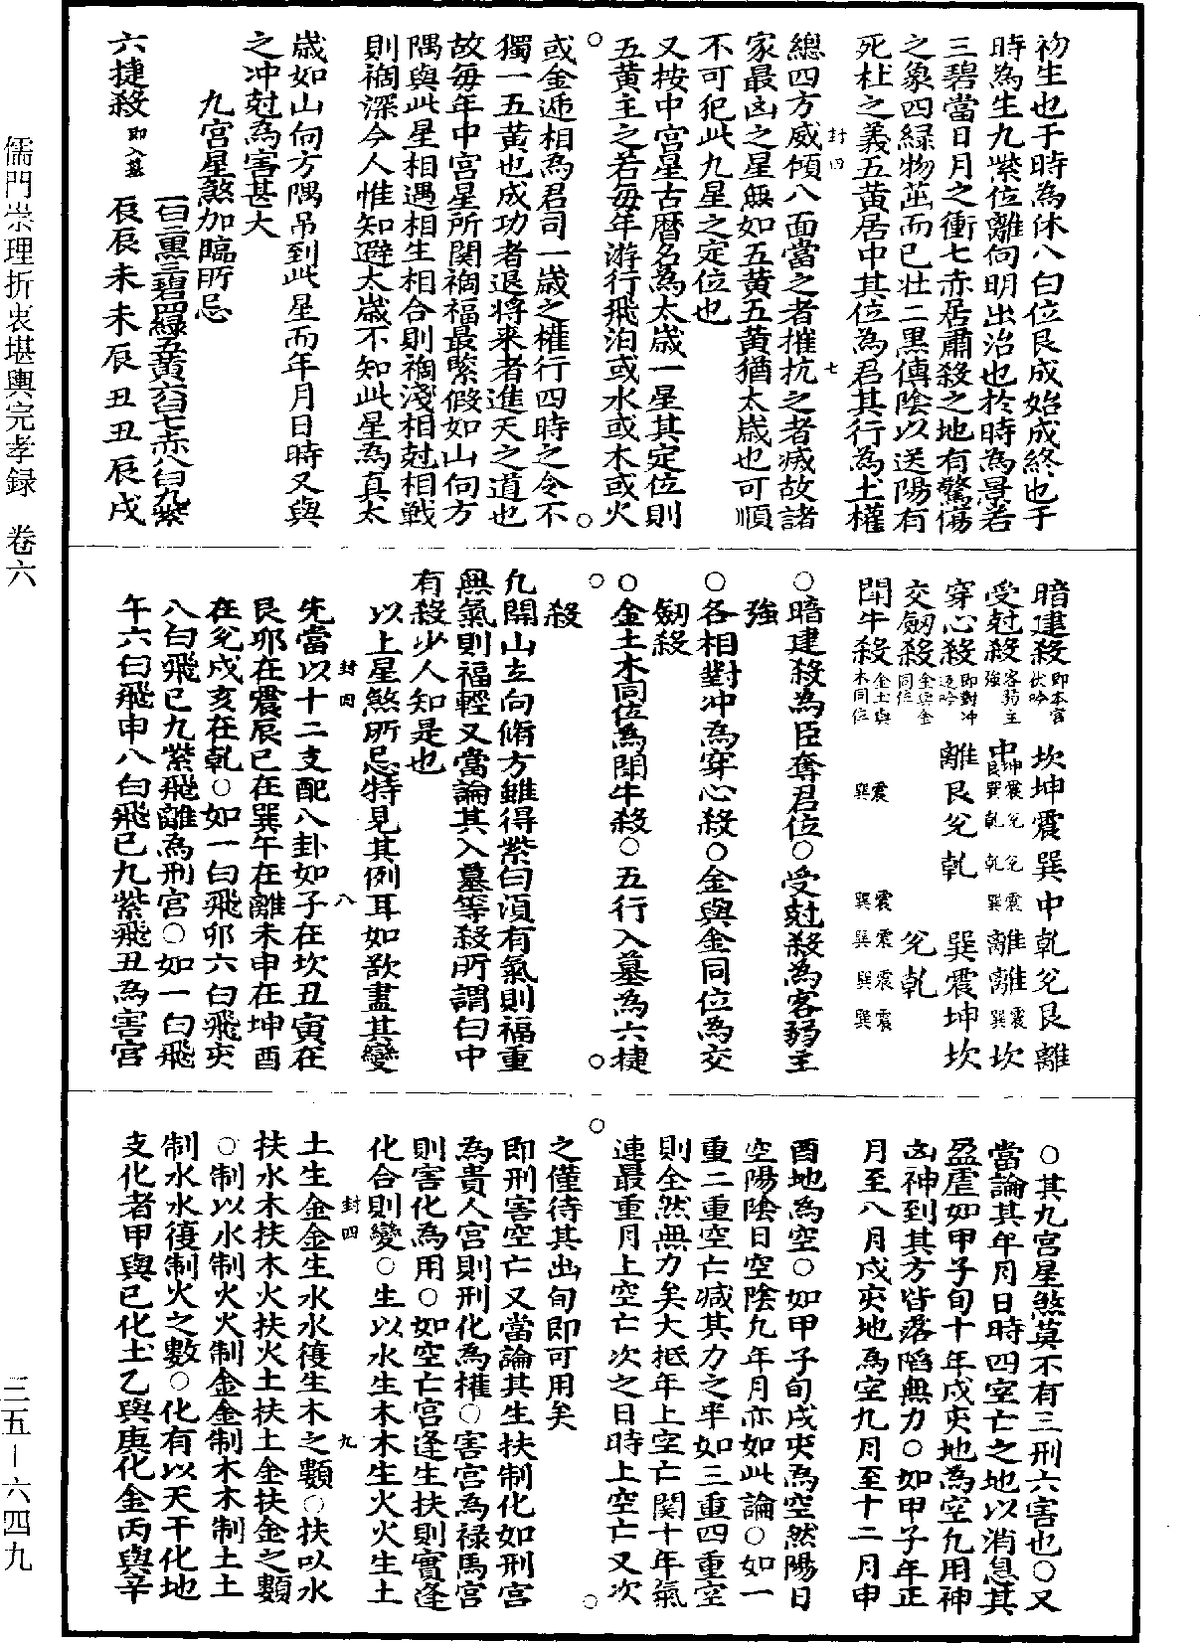 初生也于時為休八白位艮成始成終也于
時為生九紫位離向明出治也於時為景若
三碧當日月之衝七赤居肅殺之地有驚傷
之象四緑物茁而已壮二黒傳陰以送陽有
死杜之義五黄居中其位為君其行為土權
封四 七
總四方威傾八面當之者摧抗之者滅故諸
家最凶之星無如五黄五黄猶太歳也可順
不可犯此九星之定位也
又按中宫星古暦名為太歳一星其定位則
五黄主之若每年游行飛泊或水或木或火
或金遁相為君司一歳之權行四時之令不
獨一五黄也成功者退将来者進天之道也
故每年中宫星所関禍福最緊假如山向方
隅與此星相遇相生相合則禍淺相尅相戦
則禍深今人惟知避太歳不知此星為真太
歳如山向方隅吊到此星而年月日時又與
之冲尅為害甚大
九宫星煞加臨所忌
一白二黒三碧四緑五黄六白七赤八白九紫
六捷殺 即入墓 辰辰未未辰丑丑辰戌
暗建殺 即本宫伏吟 坎坤震巽中乾兊艮離
受尅殺 客弱主強 中 坤艮 震巽 兊乾 兊乾 震巽 離 離 震巽 坎
穿心殺 即對冲返吟 離艮兊乾 巽震坤坎
交劔殺 金與金同位 兊乾
鬪牛殺 金土與木同位 震巽 震巽 震巽 震巽 震巽
○暗建殺為臣奪君位○受尅殺為客弱主
強
○各相對冲為穿心殺○金與金同位為交
劔殺
○金土木同位為鬪牛殺○五行入墓為六捷
殺
凡開山立向脩方雖得紫白湏有氣則福重
無氣則福輕又當論其入墓等殺所謂白中
有殺少人知是也
以上星煞所忌特見其例耳如欲盡其變
封四 八
先當以十二支配八卦如子在坎丑寅在
艮卯在震辰巳在巽午在離未申在坤酉
在兊戌亥在乾○如一白飛卯六白飛亥
八白飛巳九紫飛離為刑宫○如一白飛
午六白飛申八白飛巳九紫飛丑為害宫
○其九宫星煞莫不有三刑六害也○又
當論其年月日時四空亡之地以消息其
盈虛如甲子旬十年戌亥地為空凡用神
凶神到其方皆落陷無力○如甲子年正
月至八月戌亥地為空九月至十二月申
酉地為空○如甲子旬戌亥為空然陽日
空陽陰日空陰凡年月亦如此論○如一
重二重空亡減其力之半如三重四重空
則全然無力矣大抵年上空亡関十年氣
連最重月上空亡次之日時上空亡又次
之僅待其出旬即可用矣
即刑害空亡又當論其生扶制化如刑宫
為貴人宫則刑化為權○害宫為禄馬宫
則害化為用○如空亡宫逢生扶則實逢
化合則變○生以水生木木生火火生土
封四 九
土生金金生水水復生木之數○扶以水
扶水木扶木火扶火土扶土金扶金之數
○制以水制火火制金金制木木制土土
制水水復制火之數○化有以天干化地
支化者甲與已化土乙與庚化金丙與辛
儒門崇理折衷堪輿完孝録 卷六
三五—六四九